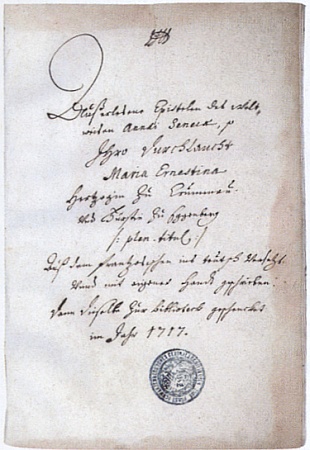 Außerlesene Epistolen des Welt-
weisen Annæi Senecæ, so
Ihro Durchlaucht
Maria Ernestina
Hertzogin Zu Crummau.
und Fürstin Zu Eggenberg
/: plen. titul :/
Auß dem frantzösischen ins teutsch übersetzt
unnd mit eigener Handt geschrieben.
dann dieselbe Zur bibliotheck geschencket
im Jahr 1717.